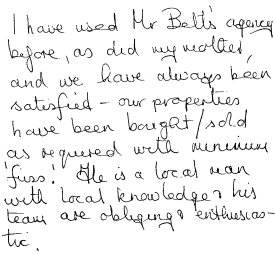 I have used Mr Bolt's agency
before, as did my mother,
and we have always been
satisfied - our properties
have been bought/sold
as required with minimum
'fuss'. He is a local man
with local knowledge & his
team are obliging & enthusias-
tic.